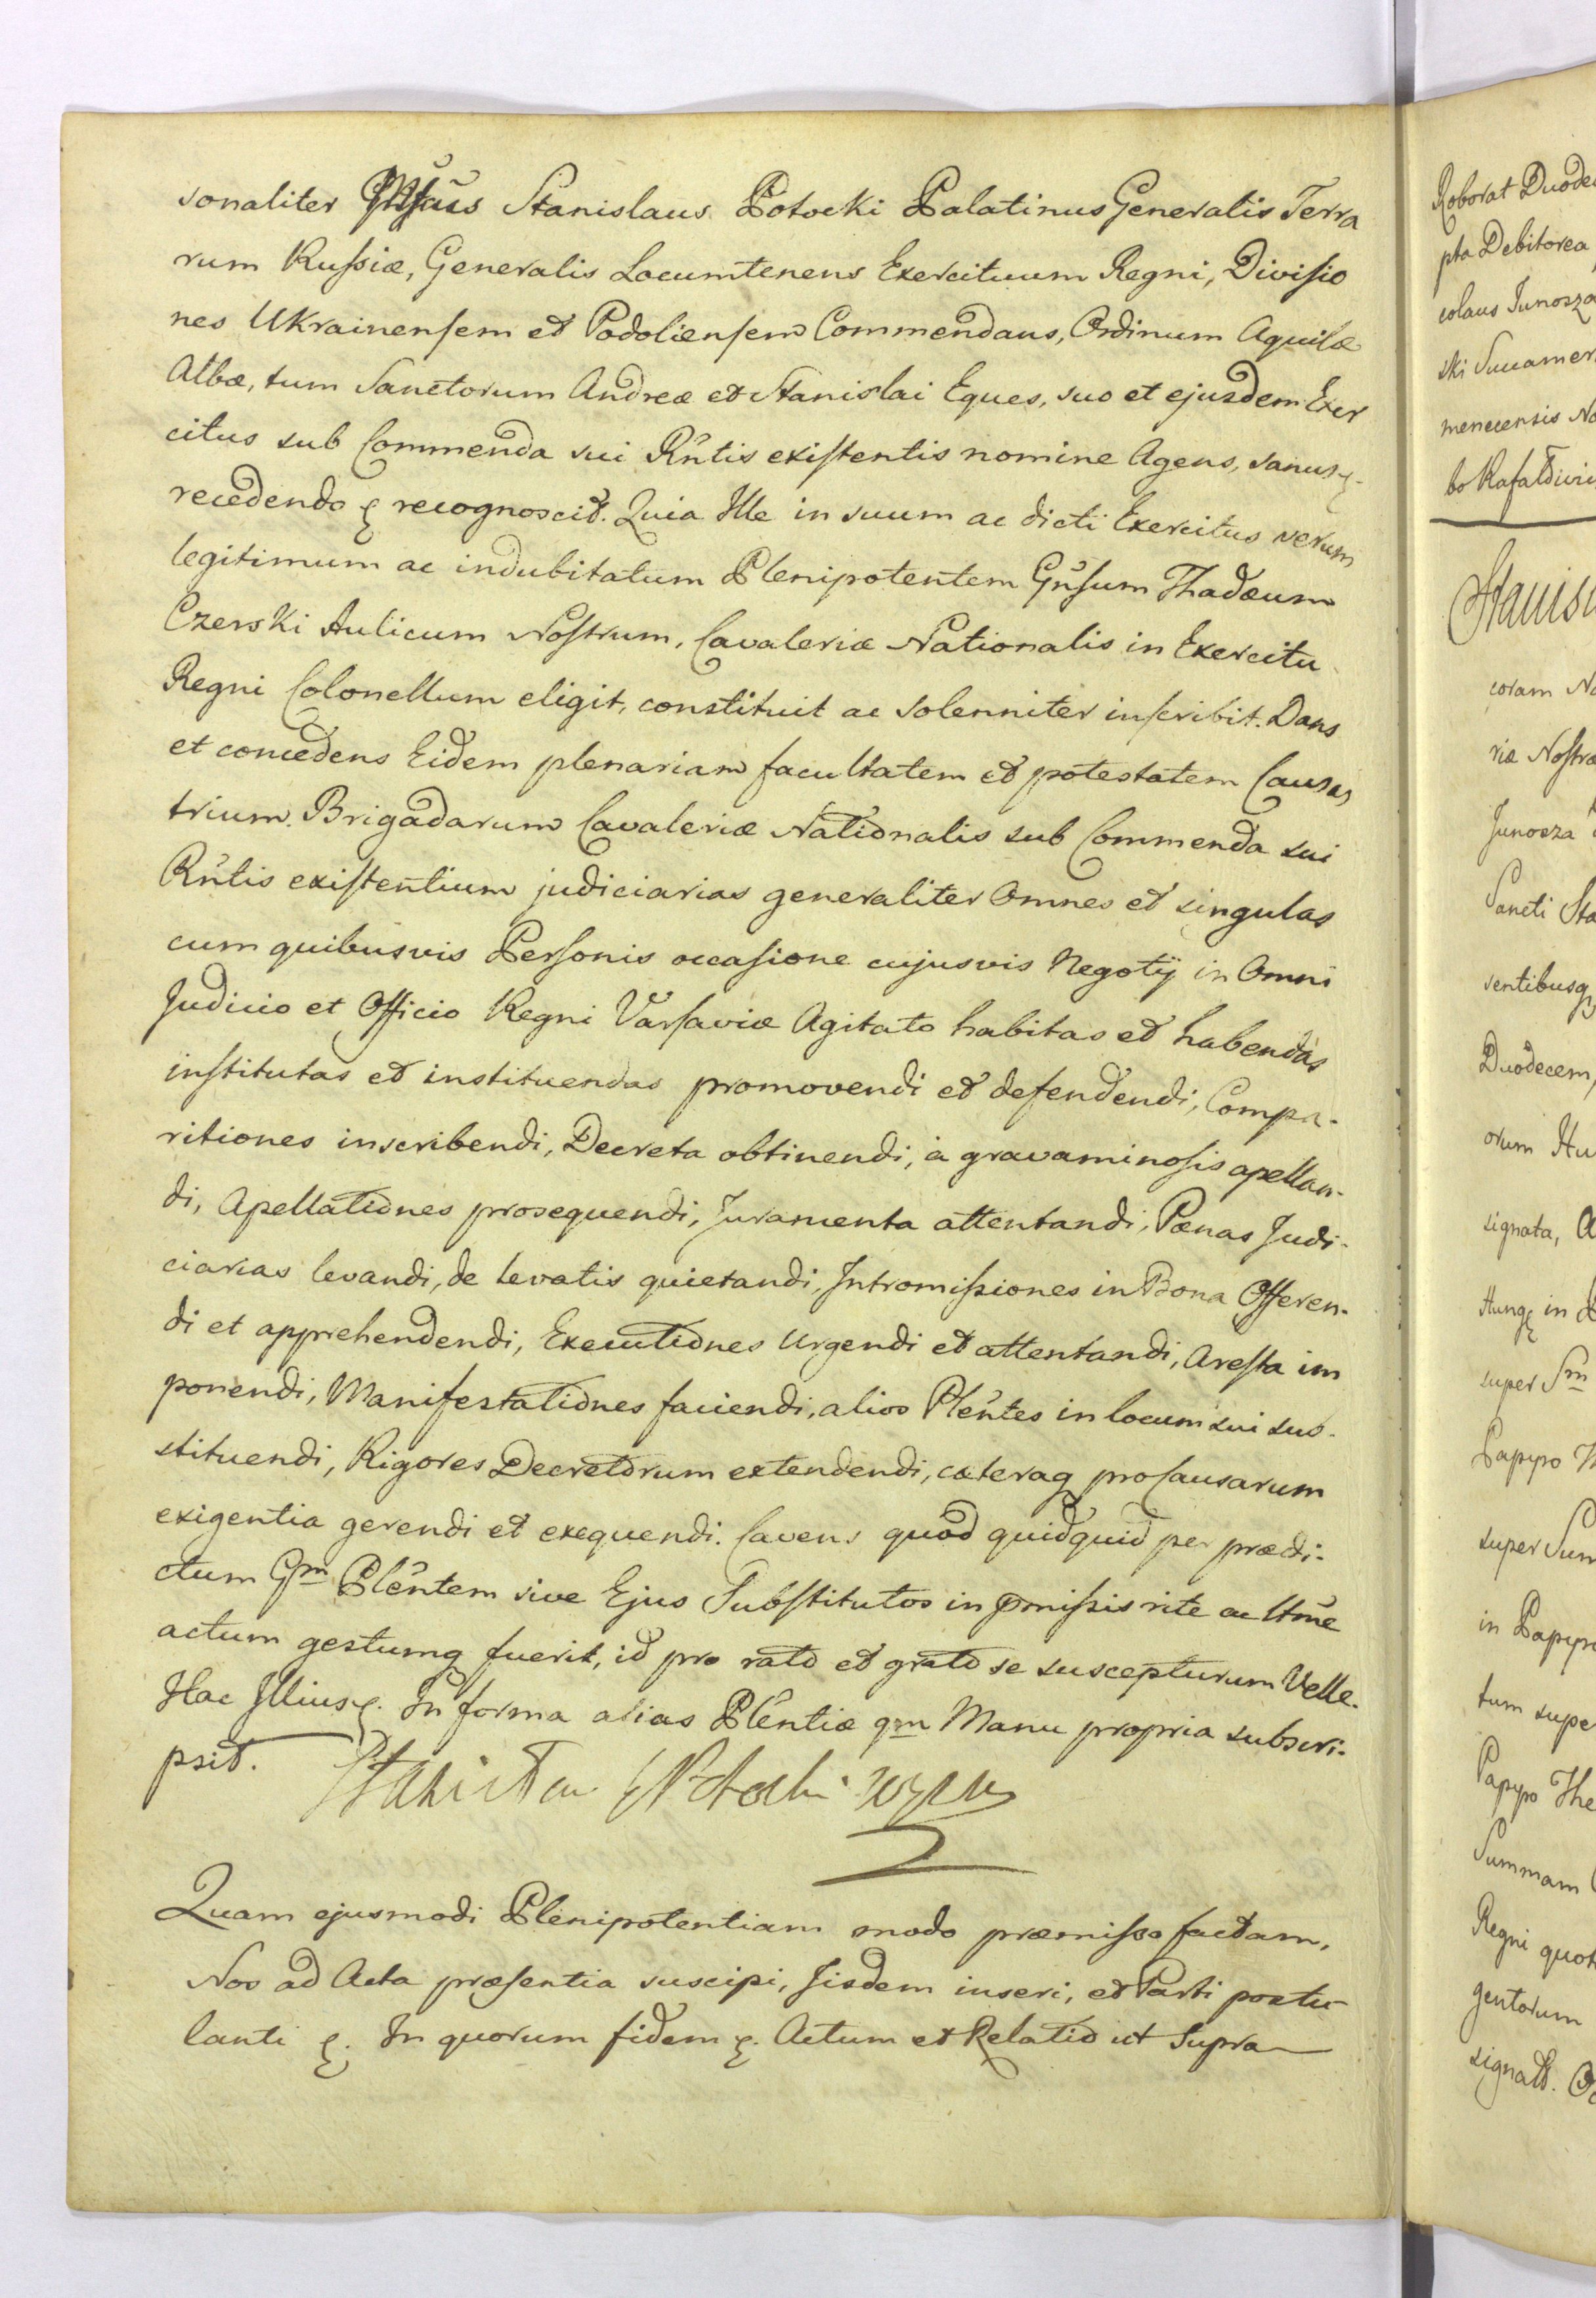 sonaliter Stanislaus Potocki Palatinus Generalis Terra
rum Russiæ, Generalis Locumtenens Exercituum Regni, Divisio
nes Ukrainensem et Podoliensem Commendans, Ordinum Aquilæ
Albæ, tum Sanctorum Andreæ et Stanislai Eques, suo et ejusdem Exer
citus sub Commenda sui Rñtis existentis nomine Agens, sanus &.
recedendo & recognoscit. Quia Ille in suum ac dicti Exercitus verum
legitimum ac indubitatum Plenipotentem Gñsum Thadæum
Czerski Aulicum Nostrum, Cavaleriæ Nationalis in Exercitu
Regni Colonellum eligit, constituit ac solenniter inscribit. Dans
et concedens Eidem plenariam facultatem et potestatem Causas
trium Brigadarum Cavaleriæ Nationalis sub Commenda sui
Rñtis existentium judiciarias generaliter Omnes et singulas
cum quibusvis Personis occasione cujusvis Negotÿ in Omni
Judicio et Officio Regni Varsaviæ Agitato habitas et habendas
institutas et instituendas promovendi et defendendi, Compa-
ritiones inscribendi, Decreta obtinendi, à gravaminosis apellan-
di, Apellationes prosequendi, Juramenta attentandi, Pœnas Judi-
ciarias levandi, de levatis quietandi, Intromissiones in Bona Offeren-
di et apprehendendi, Executiones Urgendi et attentandi, Aresta im
ponendi, Manifestationes faciendi, alios Plêntes in locum sui sub-
stituendi, Rigores Decretorum extendendi, cæteraq pro Causarum
exigentia gerendi et exequendi. Cavens quod quidquid per prædi-
ctum Gm Plêntem sive Ejus Substitutos in pmissis rite ac ltme
actum gestumq fuerit, id pro rato et grato se suscepturum Velle.
Hac Illius &. In forma alias Plêntiæ qm Manu propria subscri-
psit. Stanisław Potocki
Quam ejusmodi Plenipotentiam modo præmisso factam,
Nos ad Acta præsentia suscipi, Iisdem inseri, et Parti postu-
lanti &. In quorum fidem &. Actum et Relatio ut Supra
Roborat
pta Debitorea
colaus Junosza
ski
menecensis
bo
coram
riæ
Junosza
Sancti
sentibusq
Duodecem
orum
signata,
Hung in
super Sm
Papyro
super
in
tum
Papyro
Summam
Regni
gentorum
signatt.